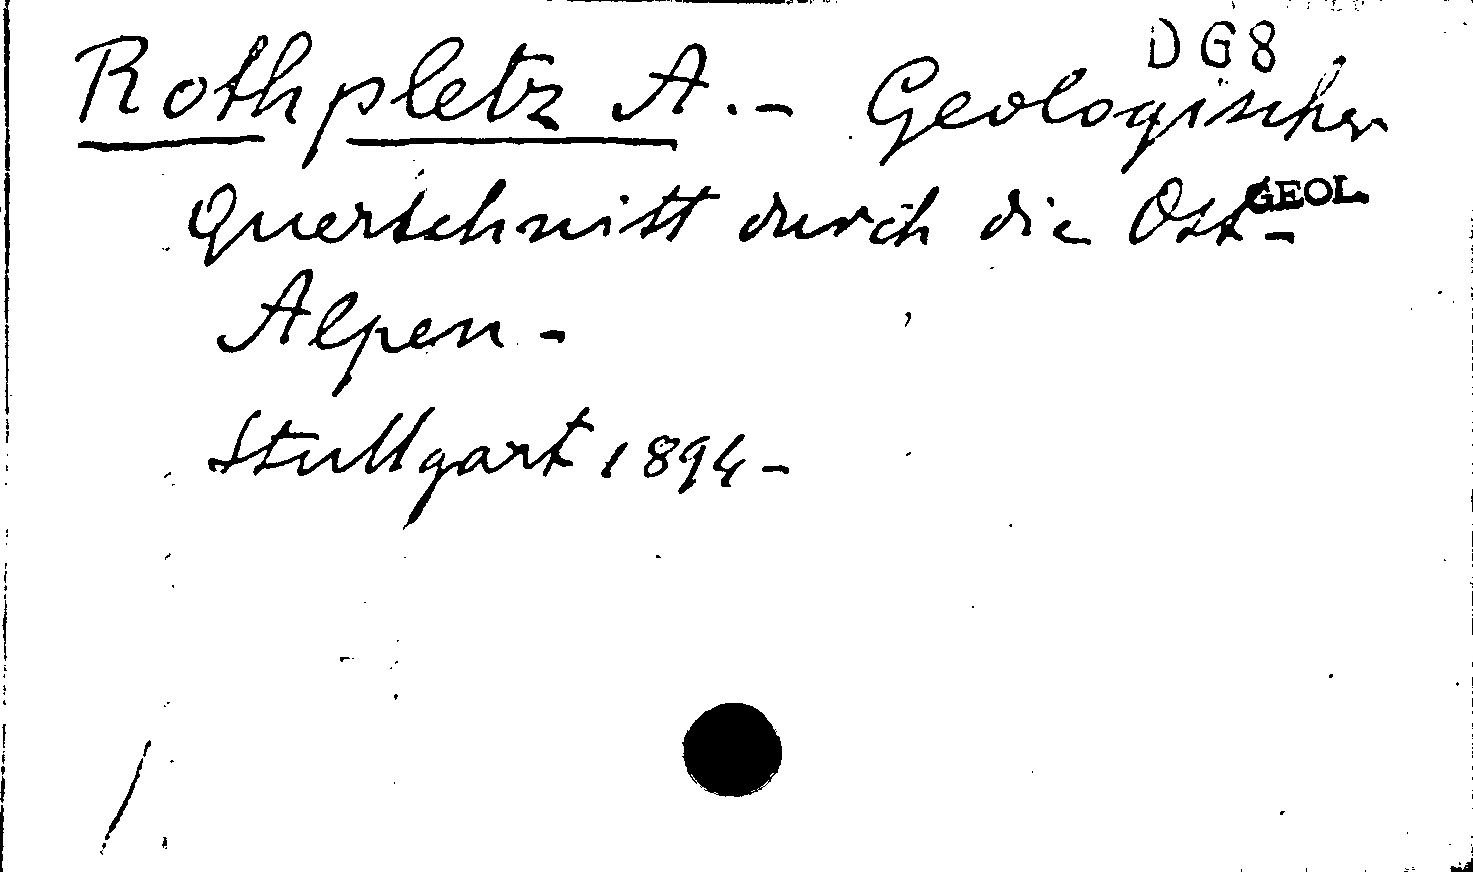 DG8
Rothpletz A. - Geologischer
Querschnitt durch die Ost-
GEOL.
Alpen -
Stuttgart 1894 -